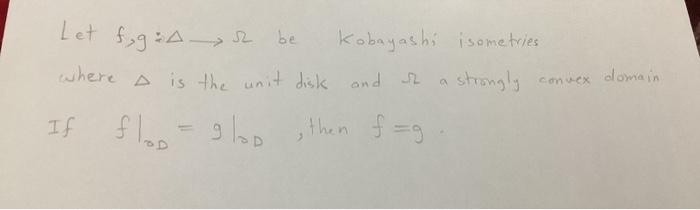 Let f,g : Δ → Ω be Kobayashi isometries
where Δ is the unit disk and Ω a strongly convex domain
If f|∂D = g|∂D , then f = g .